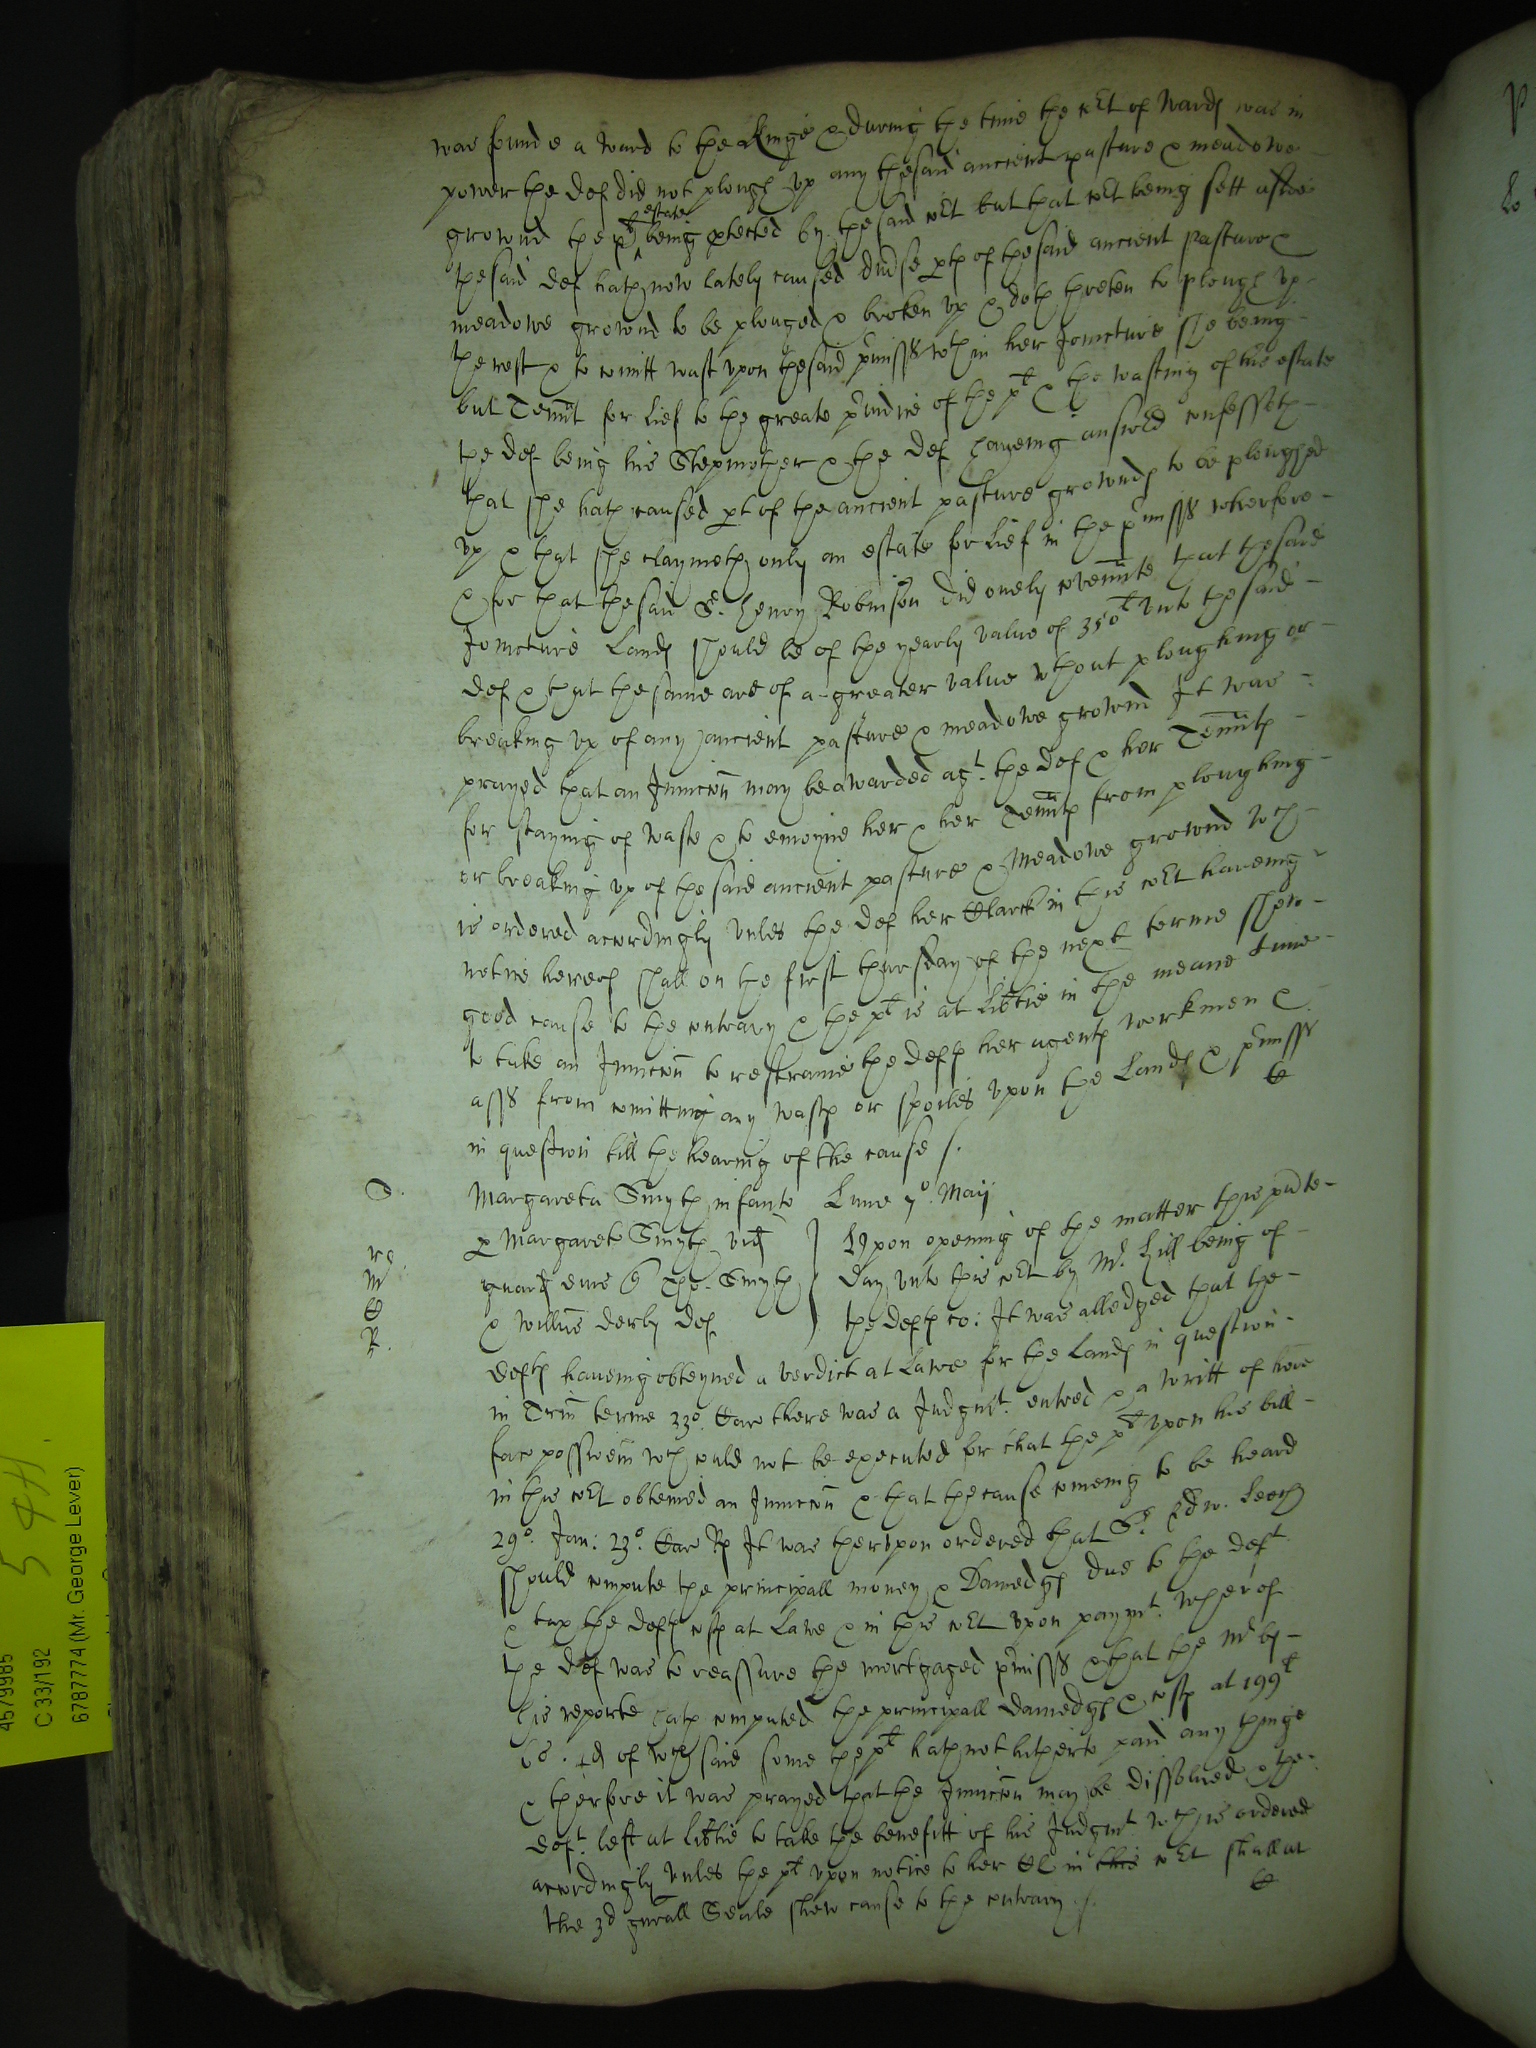 was founde a ward to the Kinge & during the time the Co:rt of Wards was in
power the def did not plough vp any the said ancient pasture & meadowe
ground the pl:t estate being ptected by the said Co:rt but that Co:rt being sett aside
the said def hath now lately caused diuse pts of the said ancient pasture &
meadowe ground to be plouged & broken vp & doth threten to plough vp
the rest & to comitt wast vpon the said pmisss w:ch in her Joincture she being
but Tennt for lief to the greate piudice of the pl:t & the wasting of his estate
the def being his Stepmother & the def haueing answed confesseth
that she hath caused pt of the ancient pasture grounds to be ploughed
vp & that she claymeth only an estate for lief in the pmisss wherfore
& for that the said S:r Henry Robinson did onely covennte that the said
Joincture Lands should be of the yearly value of 350:l vnto the said
def & that the same are of a greater value w:thout ploughing or
breaking vp of any ancient pasture & meadowe ground It was
prayed that an Iniuccon may be awarded ag:t the def & her Tennts
for staying of waste & to enioyne her & her Tennts from ploughing
or breaking vp of the said ancient pasture & meadowe ground w:ch
is ordered accordingly vnles the def her Clarck in this Co:rt haueing
notice hereof shall on the first thursday of the next terme shew
good cause to the contrary & the pl:t is at libtie in the meane time
to take an Iniuccon to restraine the defts her agents workmen &
asss from comitting any wasts or spoiles vpon the Lands & pmisss
in question till the hearing of the cause /.
Margareta Smyth infante Lune 7:o Maij
p Margareta Smyth vid
guard eius Tho: Smyth
& Willus Derby def
Vpon opening of the matter this pnte
day vnto this Co:rt by M:r Hill being of
the defts Co: It was alledged that the
defts haueing obteyned a verdict at Lawe for the Lands in question
in Trin terme 23:o Car there was a Judgm:t entred & a writt of here
fac possioem w:ch could not be executed for that the pl:t vpon his bill
in this Co:rt obteined an Iniuccon & that the cause comeing to be heard
29:o Jan: 23:o Car Rs It was therevpon ordered that S:r Edw. Leech
should compute the principall money & Damedgs due to the def:t
& tax the defts costs at Lawe & in this Co:rt vpon paym:t wherof
the def was to reassure the mortgaged pmisss & that the M:r by
his reporte hath computed the principall damedgs & costs at 199:l
6s. 4d of w:ch said some the pl:t hath not hitherto paid any thinge
& therfore it was prayed that the Iniuccon may be dissolued & the
def:t left at libtie to take the benefitt of his Judgm:t w:ch is ordered
accordingly vnles the pl:t vpon notice to her Cl in this Co:rt shall at
the 3d gnrall Seale shew cause to the contrary /.
54H.
4579985
C 33/192
6787774 (Mr. George Lever)